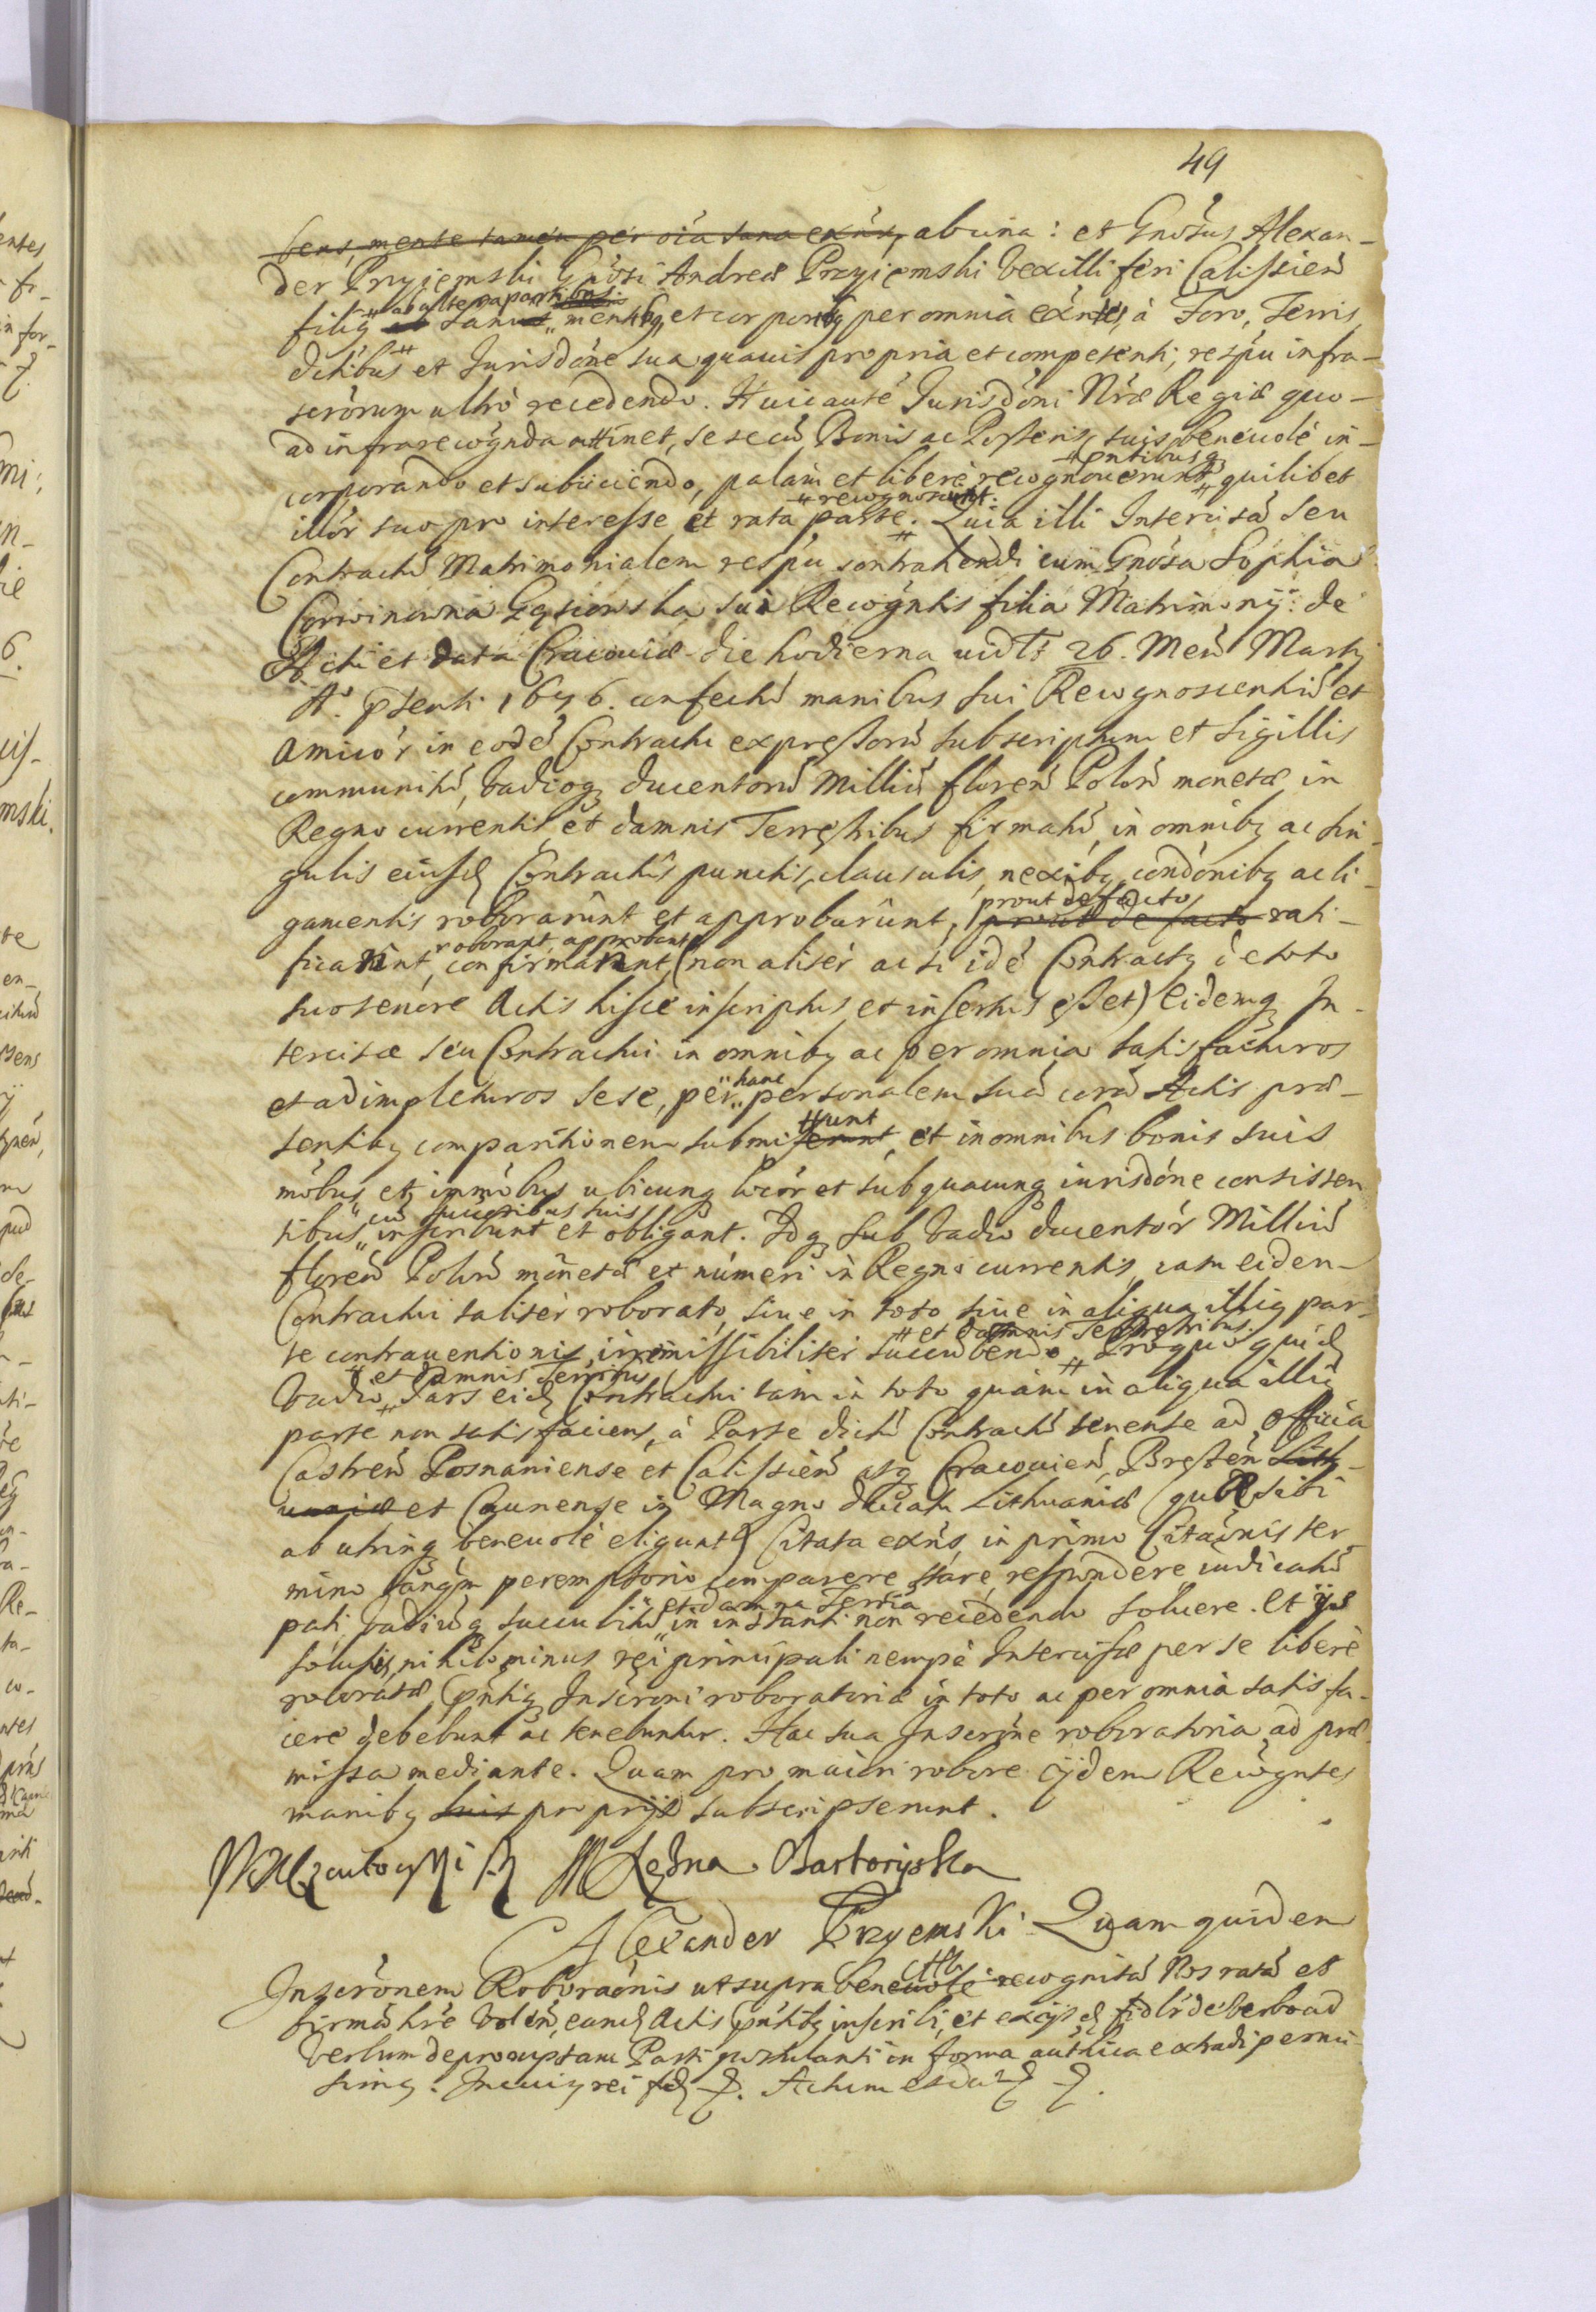 49
bens, mente tamen per oia sana exñs, ab una: et Gnosus Alexan-
der Przyiemski Gnosi Andreæ Przyiemski Vexilliferi Calissień
filig ab altera partibus sanis mentibg et corporibg per omnia exntes, à Foro, Terris,
dctibus et Jurisdone sua quauis propria et competenti, respu infra-
scrorum ultrò recedendo. Huicautè Jurisdoni Nræ Regiæ quo-
ad infrarecognda attinet, se secũ Bonis ac Posteris suis beneuolè in-
corporando et subiiciendo, palàm et liberè recognouerunt quilibet
# recognoscunt.
illor suo pro interesse et rata parte. Quia illi Intercisã seu
Contractũ Matrimonialem respu contrahendi cum Gnosa Sophia
Corvinowna Gąsiewska sua Recogntis filia Matrimonij: de
Actu et data Cracouiæ die hodierna uidlt 26. Meñ Martij
Aº. pñsenti 1676. confectũ manibus sui Recognoscentiũ et
Amicor in eodẽ Contractu expressorũ subscriptum et sigillis
communitũ, Vadiog ducentorũ Milliũ floreñ Poloñ monetæ in
Regno currentis et damnis Terrestribus firmatũ, in omnibg ac sin-
gulis eiusd Contractus punctis, clausulis, nexibg condonibg ac li-
gamentis roborarunt et approbarunt, prout de facto prout de facto rati-
roborant, approbant
ficant, confirmant, (non aliter ac si idẽ Contractg de toto
suo tenore Actis hisce inscriptus et insertus esset) Eidemq In-
tercisæ seu Contractui in omnibg ac per omnia satisfacturos
et adimpleturos sese, per hanc personalem suã corã Actis præ-
sentibg comparitionem submittunt, et in omnibus bonis suis
mobus et immobus ubicunq locor et sub quacunq iurisdone consisten
cũ successoribus suis
tibus inscribunt et obligant. Idq sub Vadio ducentor Milliũ
floreñ Poloñ monetæ et numeri in Regno currentis, casu eidem
Contractui taliter roborato, siue in toto siue in aliqua illig par-
# et damnis Terrestribus
te contrauentionis, irremissibiliter succubendo. Pro quo quid
# et damnis Terrestribus
Vadio, Pars eid Contractui tam in toto quàm in aliqua illig
parte non satisfaciens, à Parte dictũ Contractũ tenente ad Officia
Castreñ Posnaniense et Calissień atq Cracouień, Bresteñ Lith-
uaniæ et Caunense in Magno Ducatu Lithuaniæ (quæ sibi
ab utrinq beneuolè eligunt) Citata exñs, in primo Citaonis ter-
mino tanqm peremptorio comparere stare, respondere iudicatũ
et damna Terria
pati, Vadiũq succubitũ in instanti non recedendo soluere. Et ijs
solutis, nihilominus rei principali nempè Intercisæ per se liberè
roboratæ, pntiq Inscroni roboratoriæ in toto ac per omnia satisfa-
cere debebunt ac tenebuntur. Hac sua Inscrone roboratoria ad præ-
missa mediante. Quam pro maiori robore ijdem Recogntes
manibg suis proprijs subscripserunt.
Xężna Sartoryska
Alexander Przyemski Quam quidem
Inscronem Roboraonis ut supra beneuolè recognitã Nos ratã et
firmã hrè Voleñ, eand Actis pntibg inscribi, et ex ijsd fidlr de Verbo ad
Verbum depromptam Parti postulanti in forma authca extradi permi-
simg. In cuig rei fid. Actum et dat